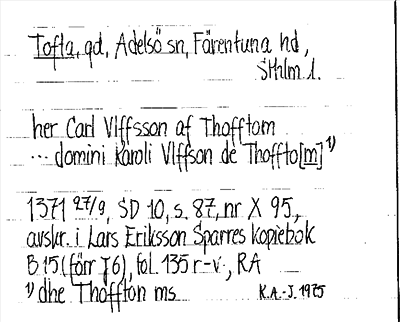 Tofta, gd, Adelsö sn, Färentuna hd,
Sthlm l.
her Carl Vlffsson af Thofftom
... domini Karoli Vlffson de Thoffto[m] 1)
1371 27/9, SD 10, s. 87, nr X 95,
avskr. i Lars Eriksson Sparres kopiebok
B 15 (förr 76), fol. 135 r-v, RA
1) dhe Thoffton ms
K.A.-J. 1975